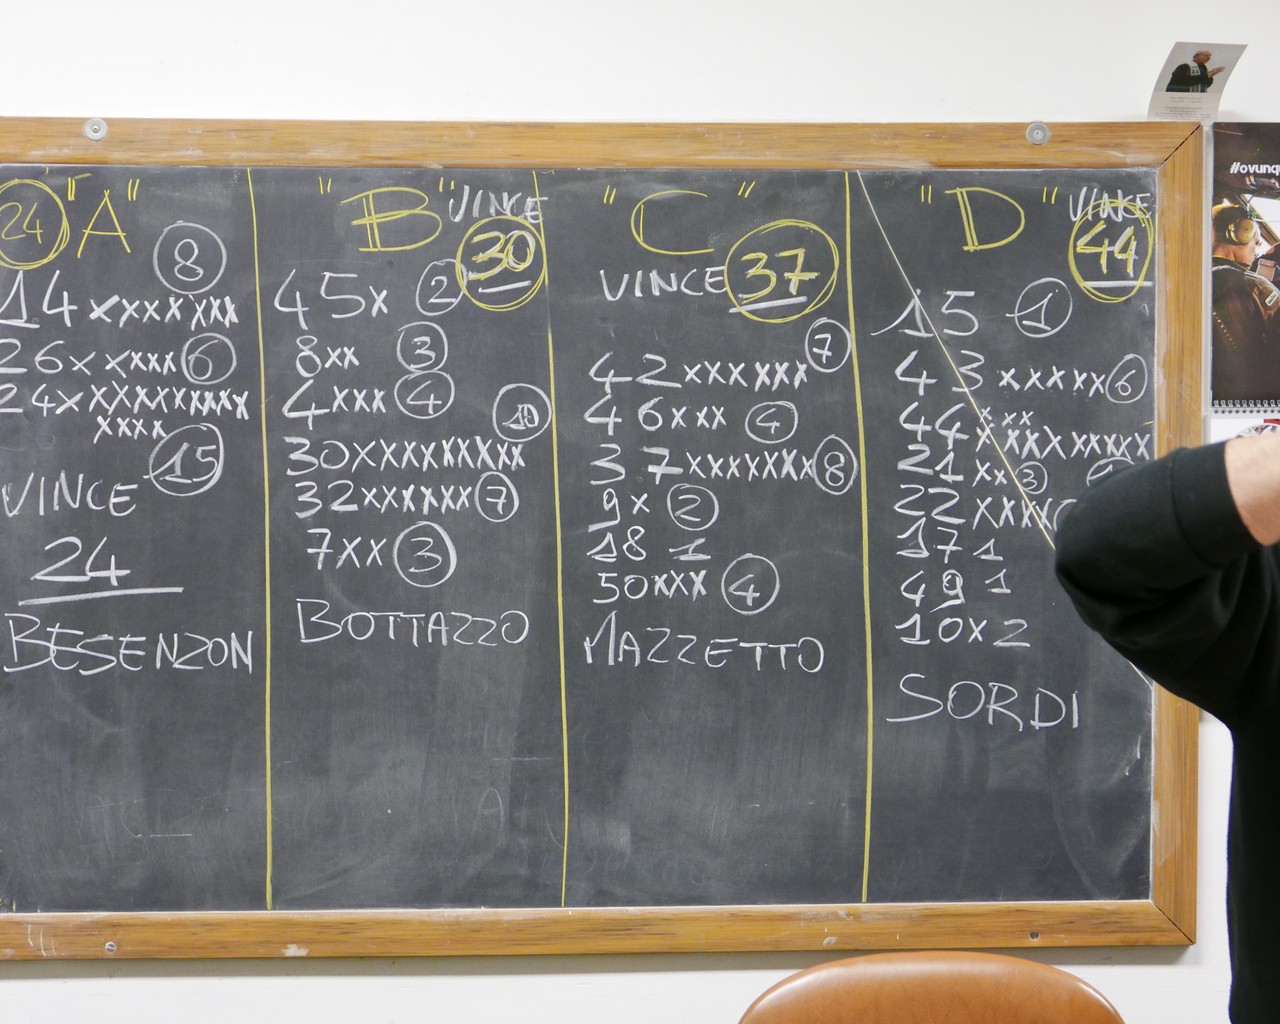 24 "A"
8
14xxxxxxx
26xxxxxx 6
24xxxxxxxxxx
xxxx
15
VINCE
24
BESENZON
"B" VINCE
30
45x 2
8xx 3
4xxx 4
10
30xxxxxxxxx
32xxxxxx 7
7xx 3
BOTTAZZO
"C"
VINCE 37
7
42xxxxxx
46xxx 4
37xxxxxxx 8
9x 2
18 1
50xxx 4
MAZZETTO
"D" VINCE
44
15 1
43xxxxx 6
xxx
44xxxxxxxxx
21xx 3
22xxxx
17 1
49 1
10x2
SORDI
#ovunqu